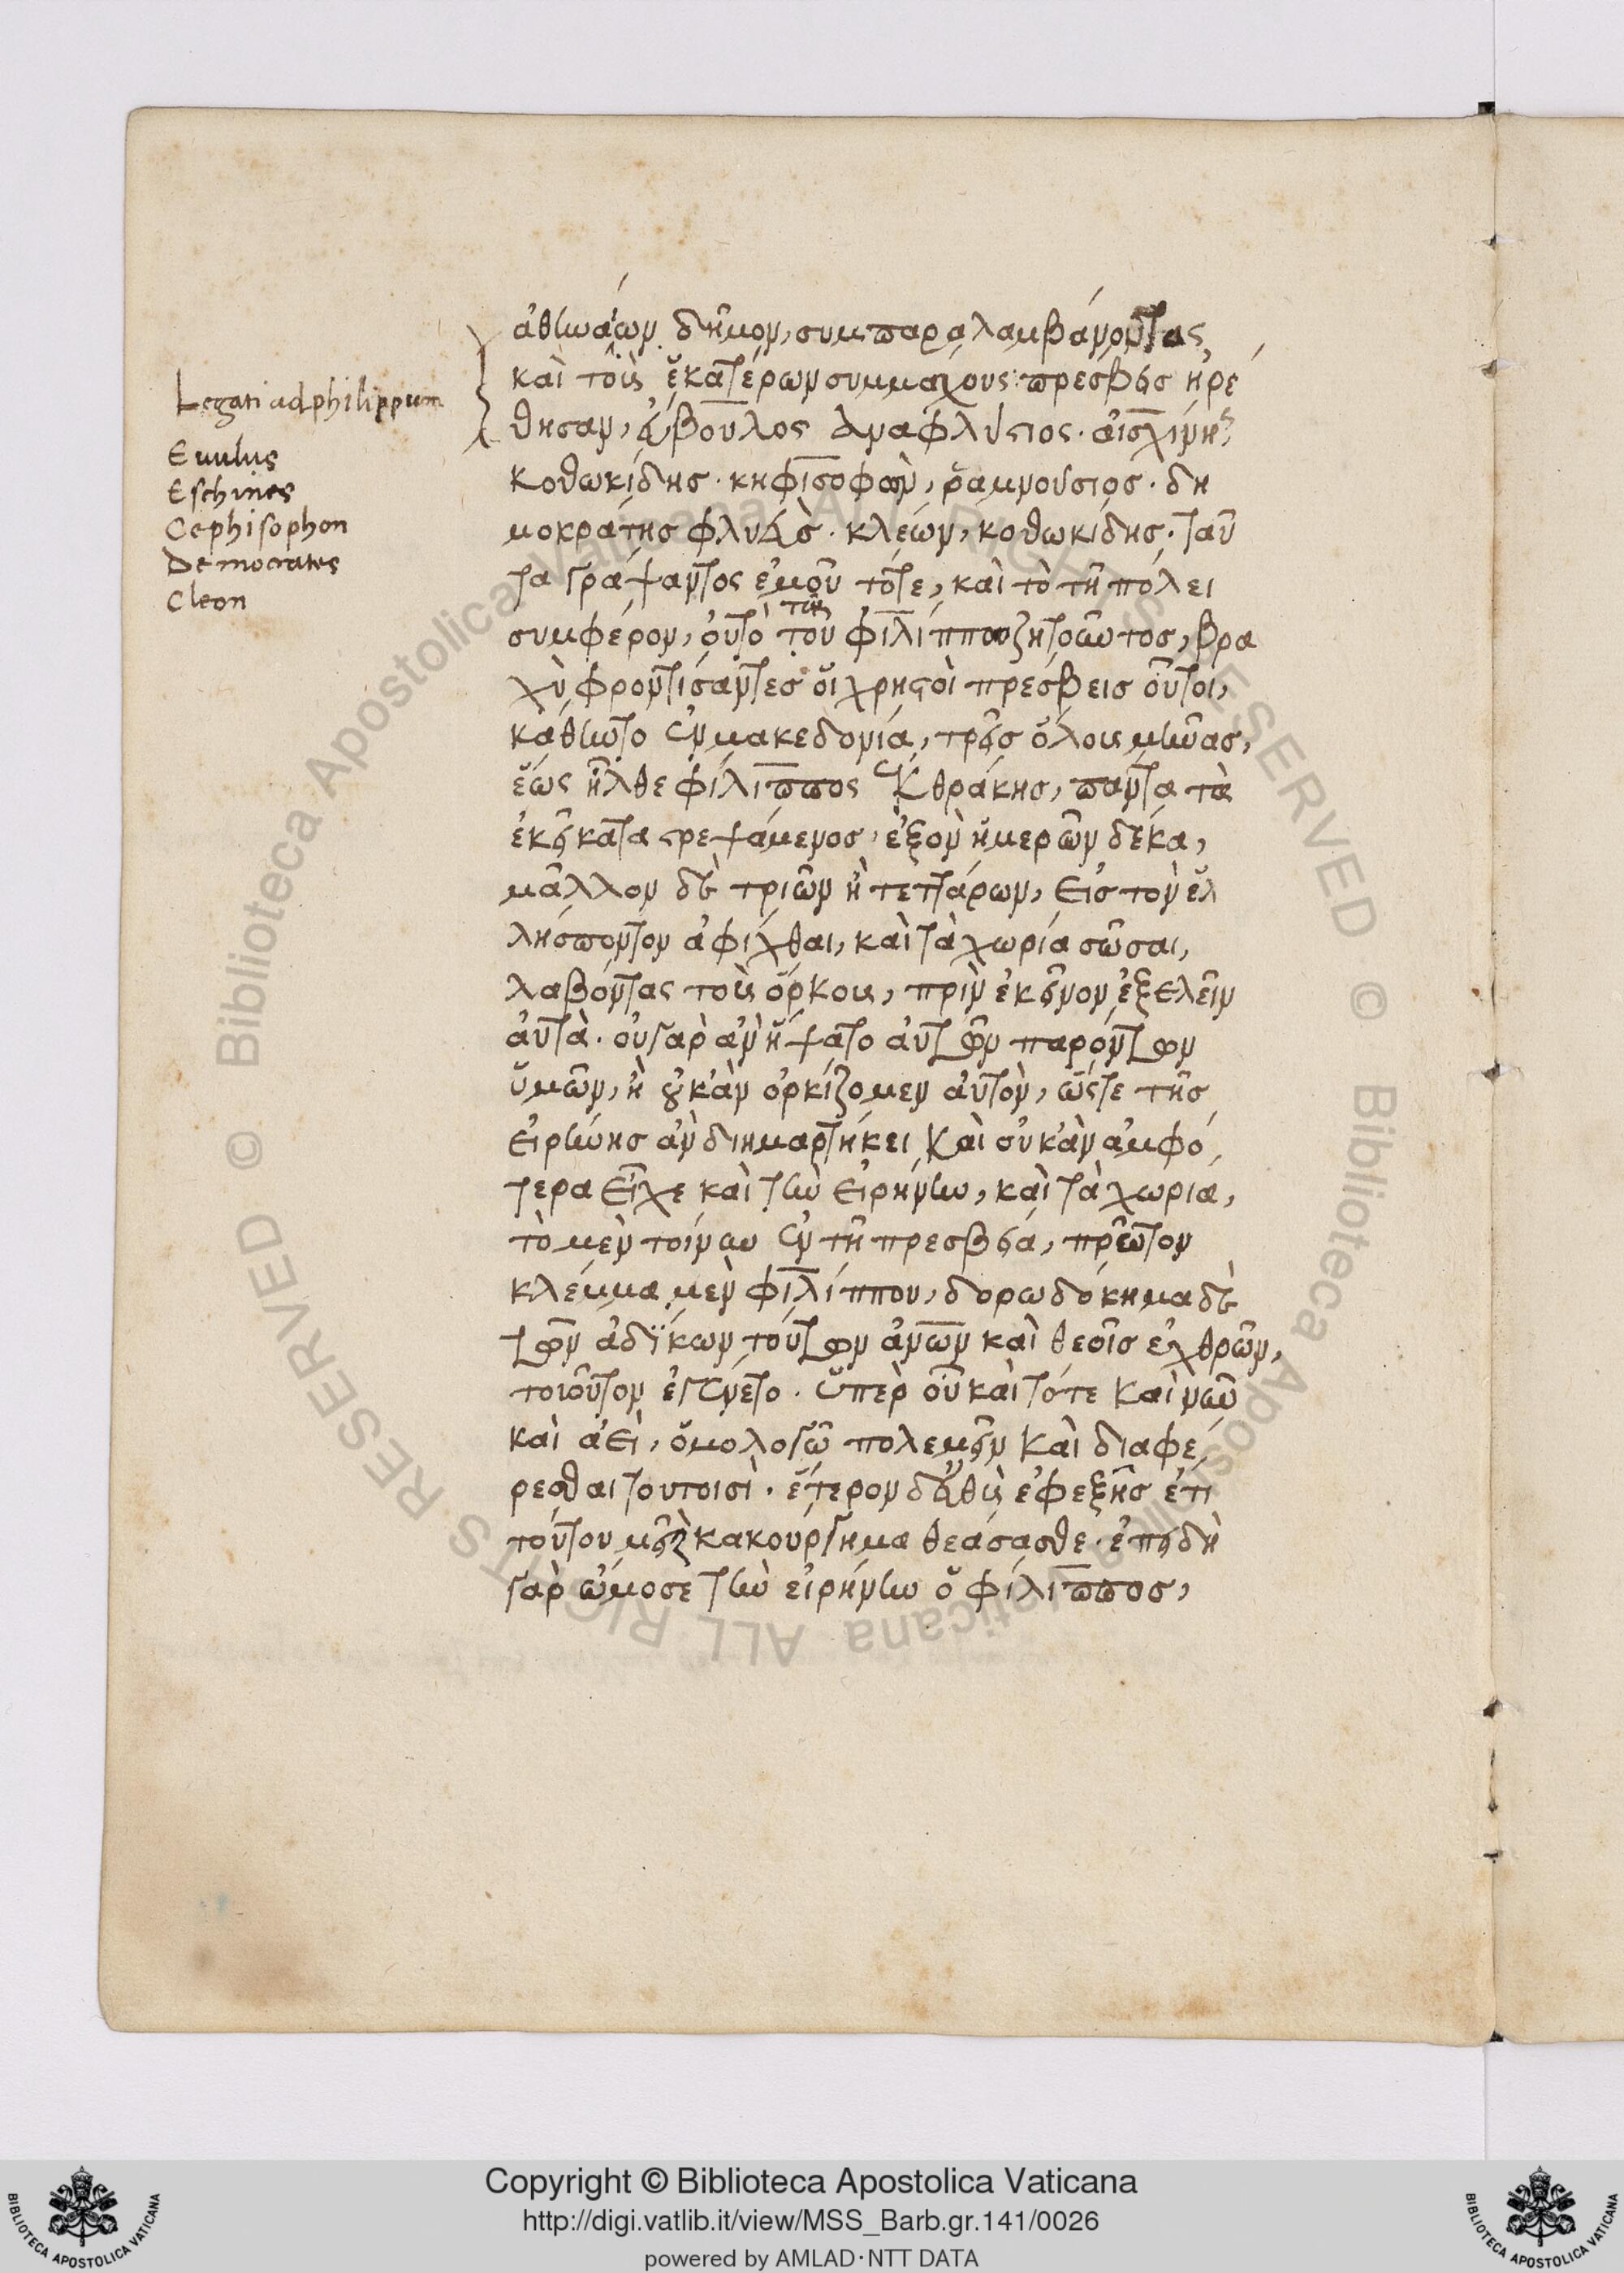 Legati ad philippum
Euulus
Eschines
Cephisophon
Democrates
Cleon
ἀθηναίων δῆμον, συμπαραλαμβάνοντας
καὶ τοὺς ἑκατέρων συμμάχους· πρέσβεις ἡρέ
θησαν, εὔβουλος ἀναφλύστιος. αἰσχίνης
κοθωκίδης. κηφισοφῶν, ῥαμνούσιος. δη
μοκράτης φλυεὺς. κλέων, κοθωκίδης. ταῦ
τα γράψαντος ἐμοῦ τότε, καὶ τὸ τῆ πόλει
συμφέρον, οὐ τὸ τῶ
τοῦ φιλίππου ζητοῦντος, βρα
χὺ φροντίσαντες οἱ χρηστοὶ πρέσβεις οὗτοι,
κάθηντο ἐν μακεδονία, τρεῖς ὅλους μῆνας,
ἕως ἦλθε φίλιππος ἐκ θράκης, πάντα τὰ
ἐκεῖ καταστρεψάμενος· ἐξὸν ἡμερῶν δέκα,
μᾶλλον δὲ τριῶν ἢ τεττάρων, εἰς τὸν ἑλ
λήσποντον ἀφίχθαι, καὶ τὰ χωρία σῶσαι,
λαβόντας τοὺς ὅρκους, πρὶν ἐκεῖνον ἐξελεῖν
αὐτὰ. οὐ γὰρ ἀν ἥψατο αὐτῶν παρόντων
ὑμῶν, ἢ οὐκ ἀν ὁρκίζομεν αὐτὸν, ὥστε τῆς
εἰρήνης ἀν διημαρτήκει καὶ οὐκ ἀν ἀμφό
τερα εἶχε καὶ τὴν εἰρήνην, καὶ τὰ χωρία,
τὸ μὲν τοίνυν ἐν τῆ πρεσβεία, πρῶτον
κλέμμα μὲν φιλίππου, δορωδόκημα δὲ
τῶν ἀδΐκων τούτων ἀνων καὶ θεοῖς ἐχθρῶν,
τοιοῦτον ἐγένετο. ὑπὲρ οὗ καὶ τότε καὶ νῦν
καὶ ἀεὶ, ὁμολογῶ πολεμεῖν καὶ διαφέ
ρεσθαι τουτοισὶ. ἕτερον δ' εὐθὺς ἐφεξῆς ἔτι
τούτου μεῖζον κακούργημα θεάσασθε. ἐπειδὴ
γὰρ ὤμοσε τὴν εἰρήνην ὁ φίλιππος,
Copyright © Biblioteca Apostolica Vaticana
http://digi.vatlib.it/view/MSS_Barb.gr.141/0026
powered by AMLAD·NTT DATA
BIBLIOTECA APOSTOLICA VATICANA
BIBLIOTECA APOSTOLICA VATICANA
© Biblioteca Apostolica Vaticana ALL RIGHTS RESERVED © Biblioteca Apostolica Vaticana ALL RIGHTS RESERVED